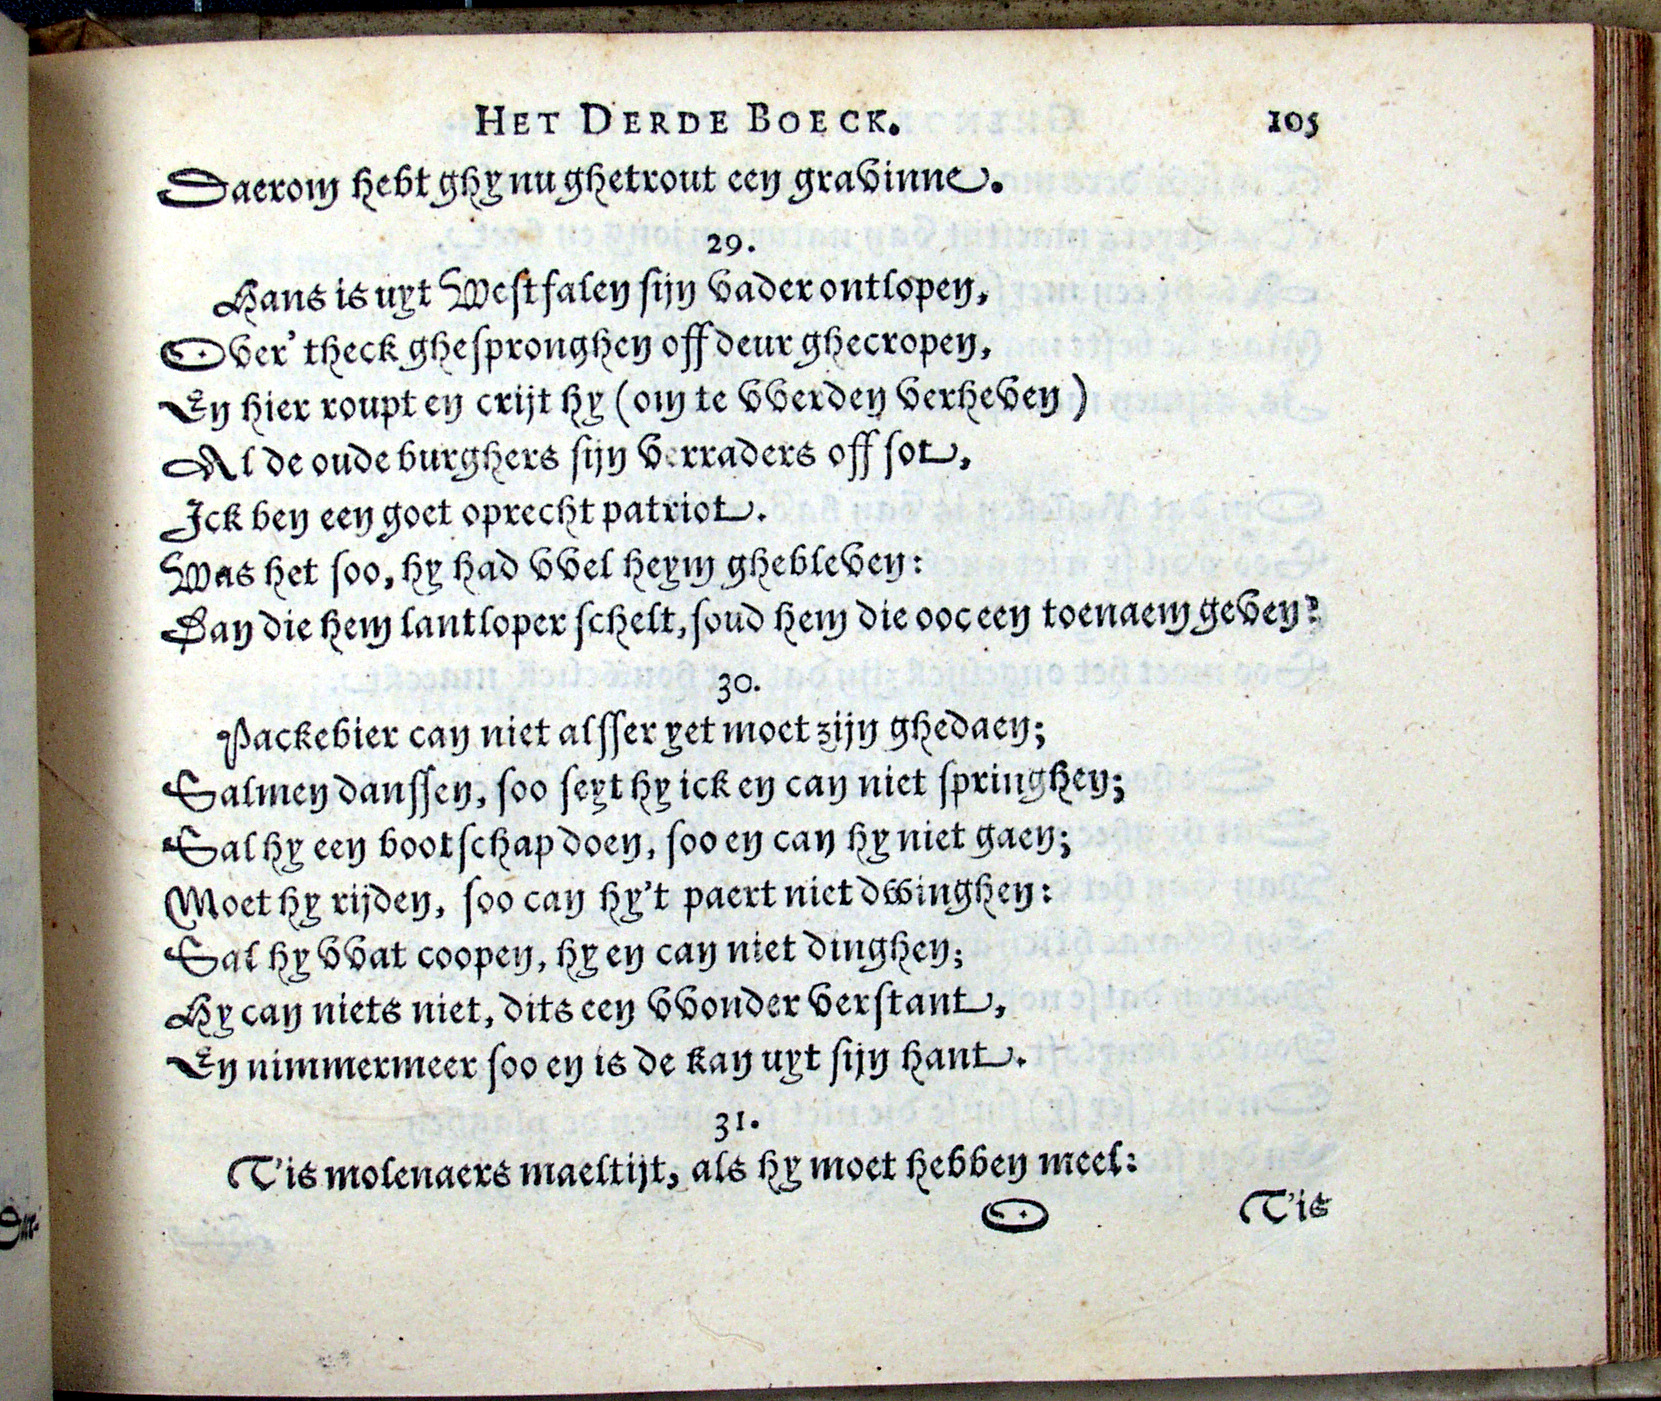 HET DERDE BOECK. 105
Daerom hebt ghy nu ghetrout een gravinne.
29.
Hans is uyt Westfalen sijn vader ontlopen,
Over' theck ghespronghen off deur ghecropen,
En hier roupt en crijt hy (om te vverden verheven)
Al de oude burghers sijn verraders off sot,
Ick ben een goet oprecht patriot.
Was het soo, hy had vvel heym ghebleven:
Dan die hem lantloper schelt, soud hem die ooc een toenaem geven?
30.
Packebier can niet alsser yet moet zijn ghedaen;
Salmen danssen, soo seyt hy ick en can niet springhen;
Sal hy een bootschap doen, soo en can hy niet gaen;
Moet hy rijden, soo can hy't paert niet dwinghen:
Sal hy vvat coopen, hy en can niet dinghen;
Hy can niets niet, dits een vvonder verstant,
En nimmermeer soo en is de kan uyt sijn hant.
31.
T'is molenaers maeltijt, als hy moet hebben meel:
O T'is